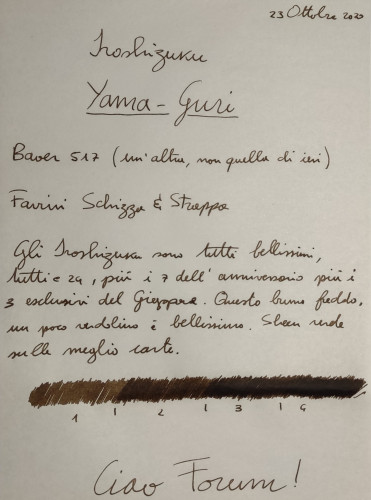 23 Ottobre 2020
Iroshizuku
Yama-Guri
Bauer 517 (un'altra, non quella di ieri)
Favini Schizza & Strappa
Gli Iroshizuku sono tutti bellissimi,
tutti e 24, più i 7 dell'anniversario più i
3 esclusivi del Giappone. Questo bruno freddo,
un poco verdolino è bellissimo. Sheen verde
sulle meglio carte.
1 2 3 4
Ciao Forum!